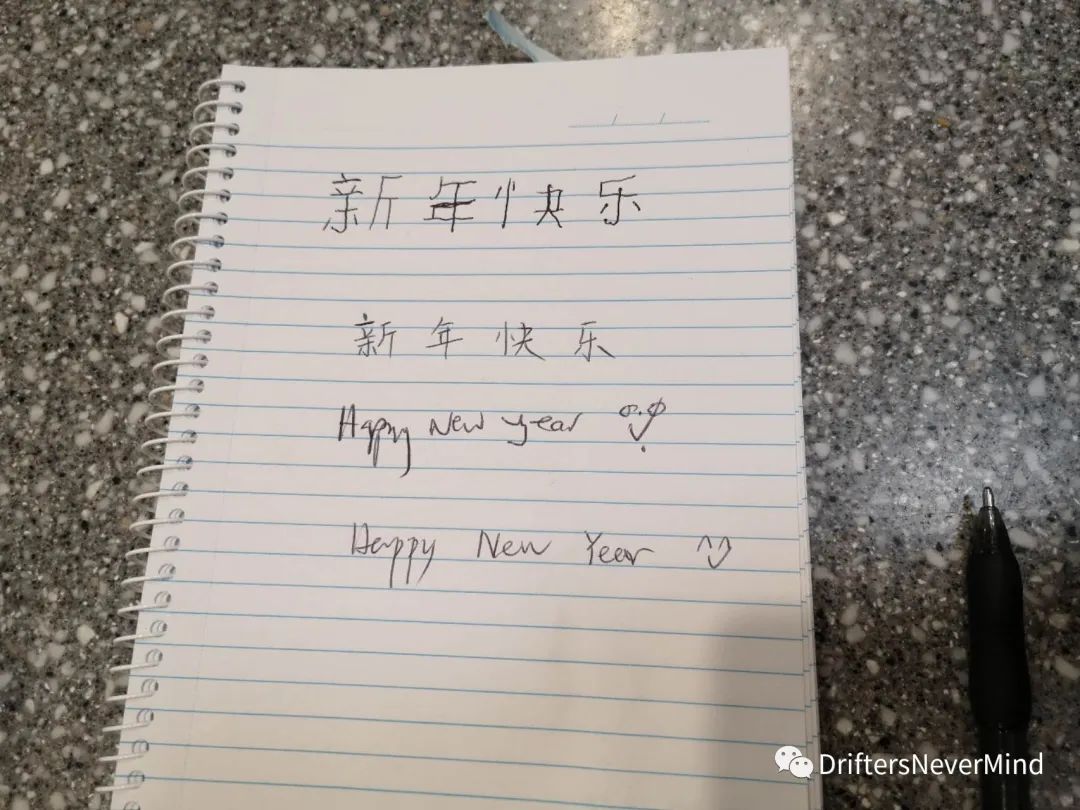 新年快乐
新年快乐
Happy New year
Happy New Year
DriftersNeverMind